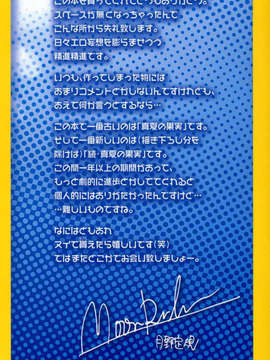 この本を買ってくれてどうもありがとう。
スペースが無くなっちゃったんで
こんな所から失礼致します。
日々エロ妄想を膨らませつつ
精進精進です。
いつも、作ってしまった物には
あまりコメントとかしないんですけれども、
あえて何か言うとするなら…
この本で一番古いのは「真夏の果実」です。
そして一番新しいのは(描き下ろし分を
除けば)「続・真夏の果実」です。
この間一年以上の期間があって、
もっと劇的に進歩とかしててくれると
個人的にはありがたかったんですけど…
…難しいものですね。
なにはともあれ
ヌイて貰えたら嬉しいです(笑)
ではまたどこかでお会い致しましょー。
月野定規